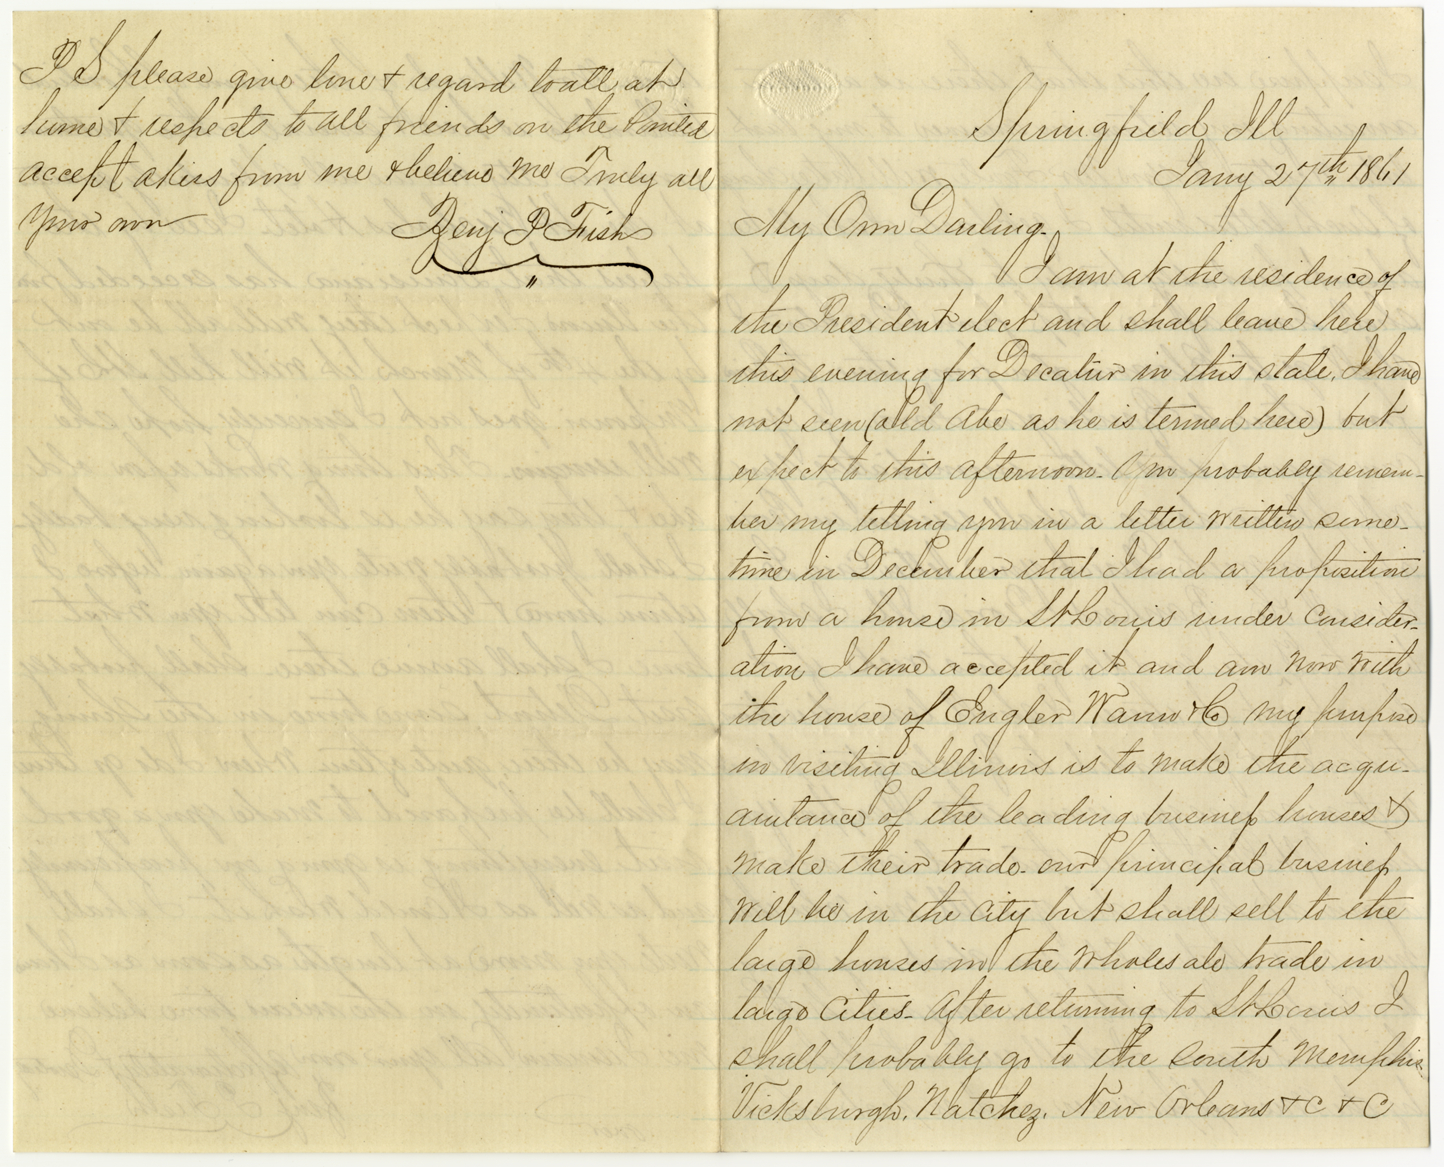 P S please give love & regard to all at
home & respects to all friends on the Pointed
accept a kiss from me & believe me Truly all
your own
Benj P Fish
Springfield Ill
Jany 27th 1861
My Own Darling.
I am at the residence of
the President elect and shall leave here
this evening for Decatur in this state. I have
not seen (old Abe as he is termed here) but
expect to this afternoon. You probably remem-
ber my telling you in a letter written some-
time in December that I had a proposition
from a house in St Louis under consider-
ation I have accepted it and am now with
the house of Engler Wann & Co my purpose
in visiting Illinois is to make the acqu-
aintance of the leading business houses &
make their trade. our principal business
will be in the city but shall sell to the
large houses in the wholesale trade in
large Cities. After returning to St Louis I
shall probably go to the South Memphis
Vicksburgh, Natchez, New Orleans &c &c